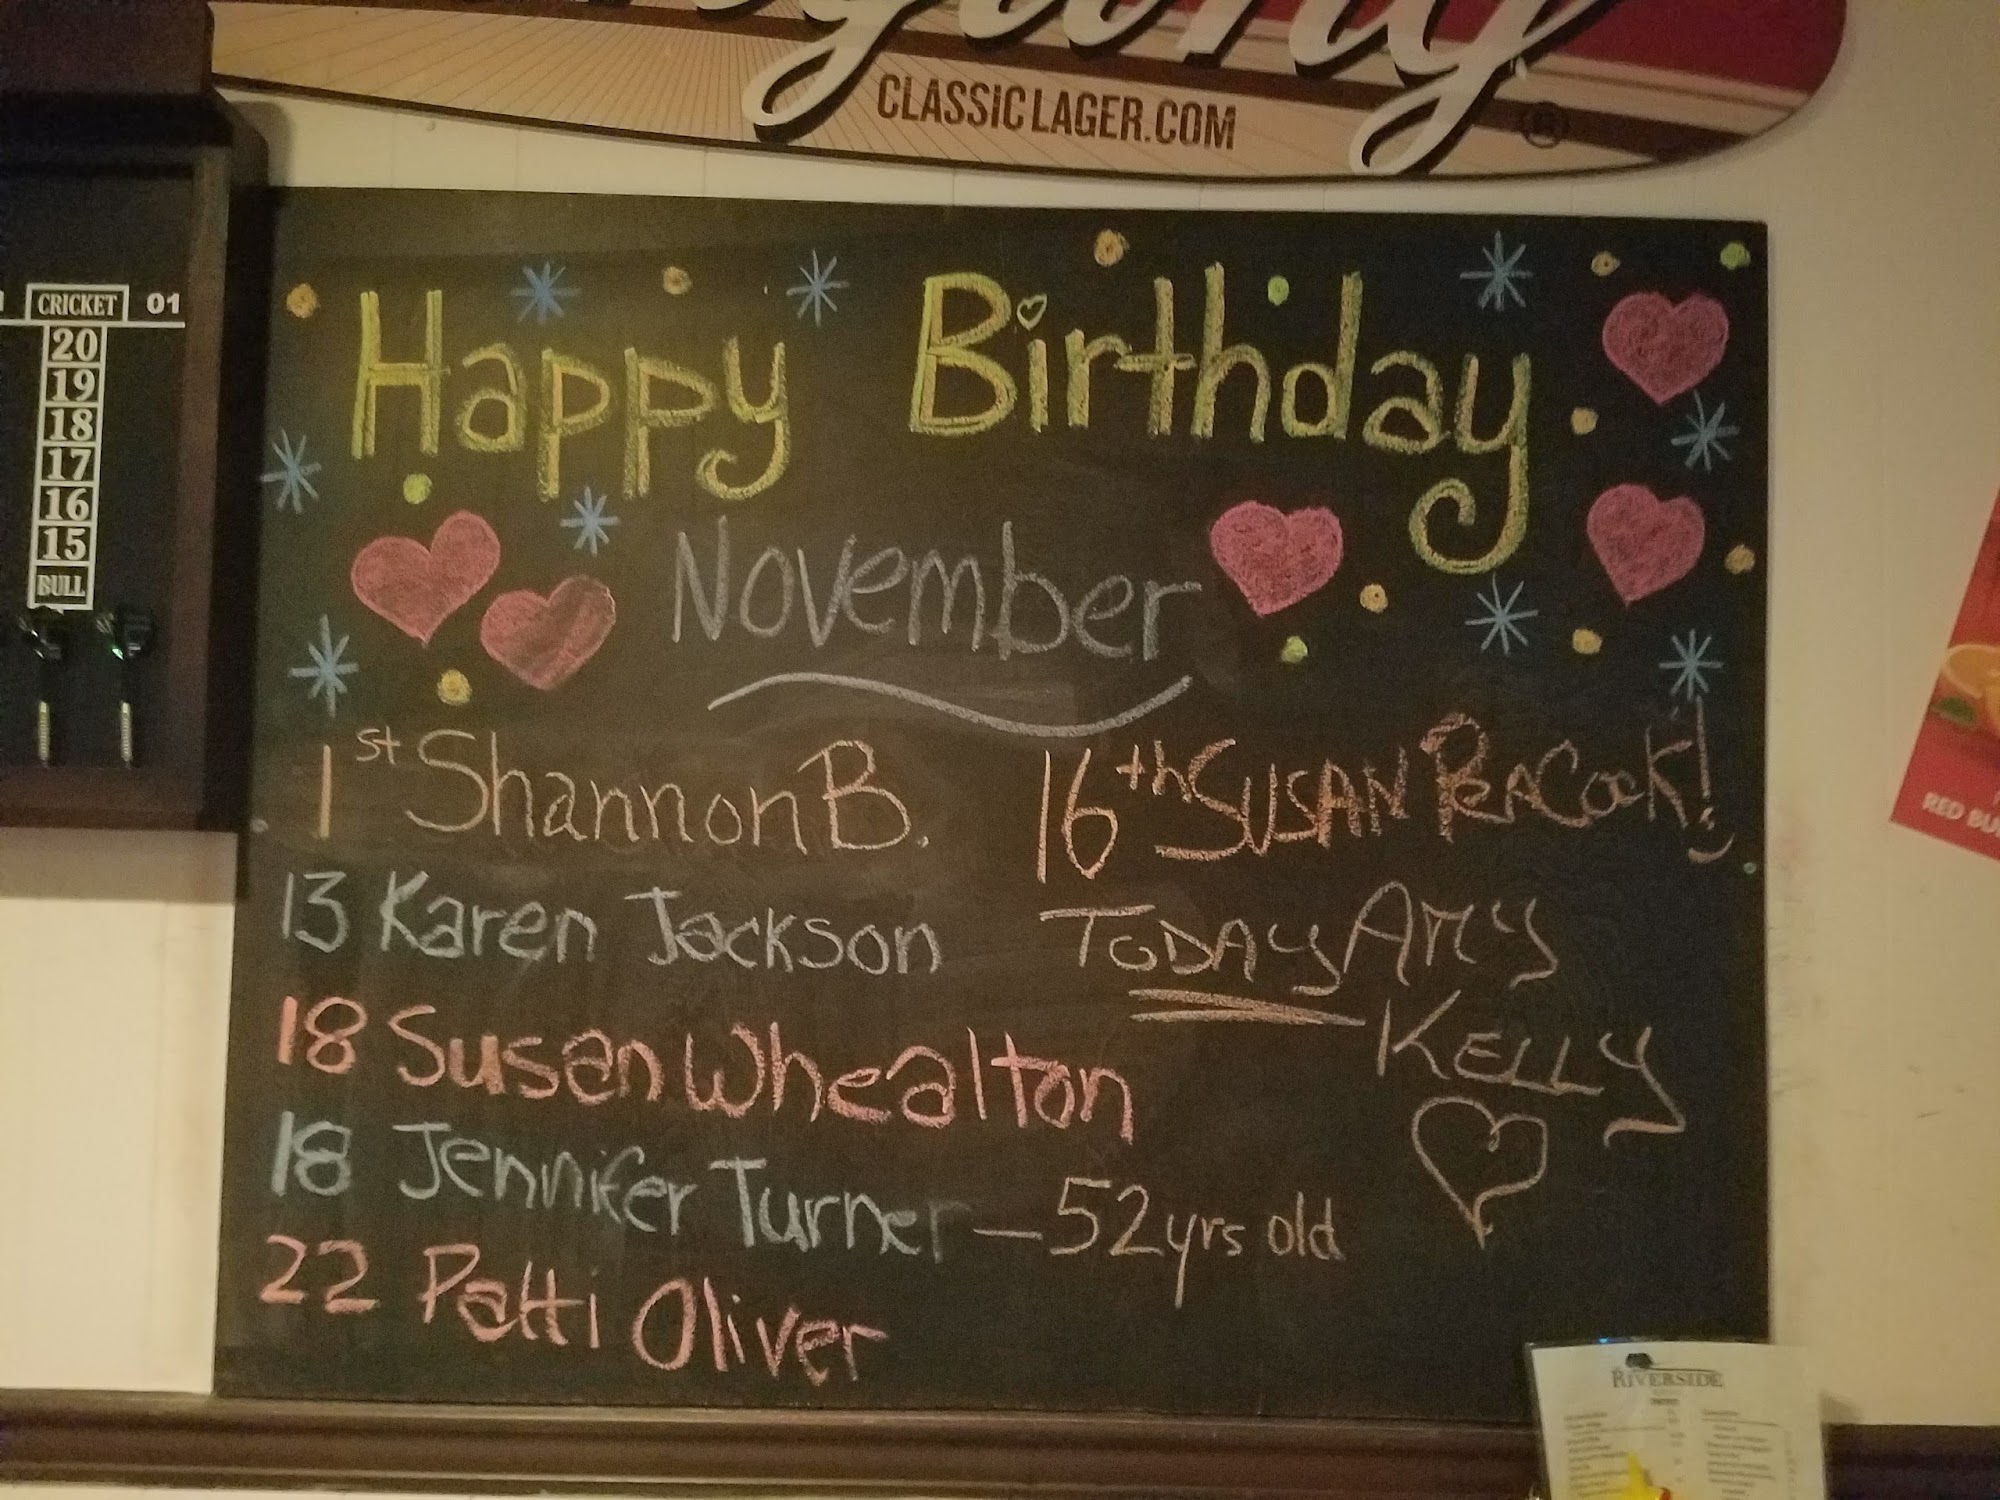 CLASSICLAGER.COM
®
CRICKET 01
20
19
18
17
16
15
BULL
Happy Birthday
November
1st Shannon B.
13 Karen Jackson
18 Susan Whealton
18 Jennifer Turner - 52 yrs old
22 Patti Oliver
16th SUSAN PEACOCK!
TODAY AMY
KELLY
RED BU
RIVERSIDE